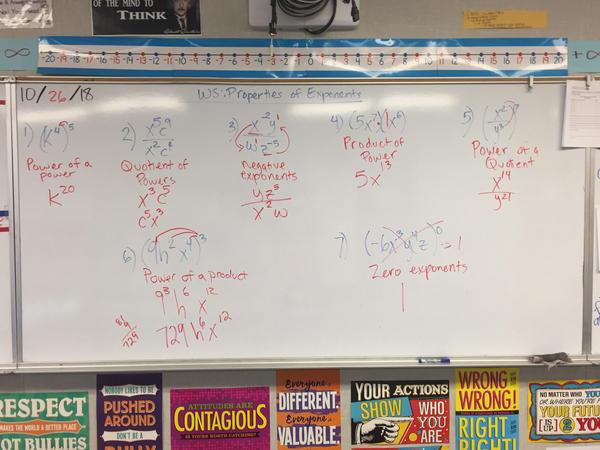 OF THE MIND TO
THINK
∞ -20 -19 -18 -17 -16 -15 -14 -13 -12 -11 -10 -9 -8 -7 -6 -5 -4 -3 -2 -1 0 1 2 3 4 5 6 7 8 9 10 11 12 13 14 15 16 17 18 19 20 + ∞
10/26/18
WS: Properties of Exponents
1) (K⁴)⁵
Power of a
power
K²⁰
2) x⁵c⁹
x²c⁴
Quotient of
Powers
x³c⁵
c⁵x³
3) x⁻²y¹
w¹z⁻⁵
Negative
exponents
yz⁵
x²w
4) (5x⁷)(1x⁶)
Product of
Power
5x¹³
5) (x²
y³)⁷
Power of a
Quotient
x¹⁴
y²¹
6) (9h²x⁴)³
Power of a product
9³h⁶x¹²
729
729h⁶x¹²
7) (-6x³y⁴z)⁰ = 1
Zero exponents
1
RESPECT
MAKES THE WORLD A BETTER PLACE
NOT BULLIES
NOBODY LIKES TO BE
PUSHED
AROUND
DON'T BE A
BULLY
ATTITUDES ARE
CONTAGIOUS
IS YOURS WORTH CATCHING?
Everyone is
DIFFERENT.
Everyone is
VALUABLE.
YOUR ACTIONS
SHOW WHO
YOU ARE
WRONG
WRONG!
RIGHT
RIGHT!
NO MATTER WHO YOU
OR WHERE YOU'RE
YOUR FUTURE
IS UP 2 YOU